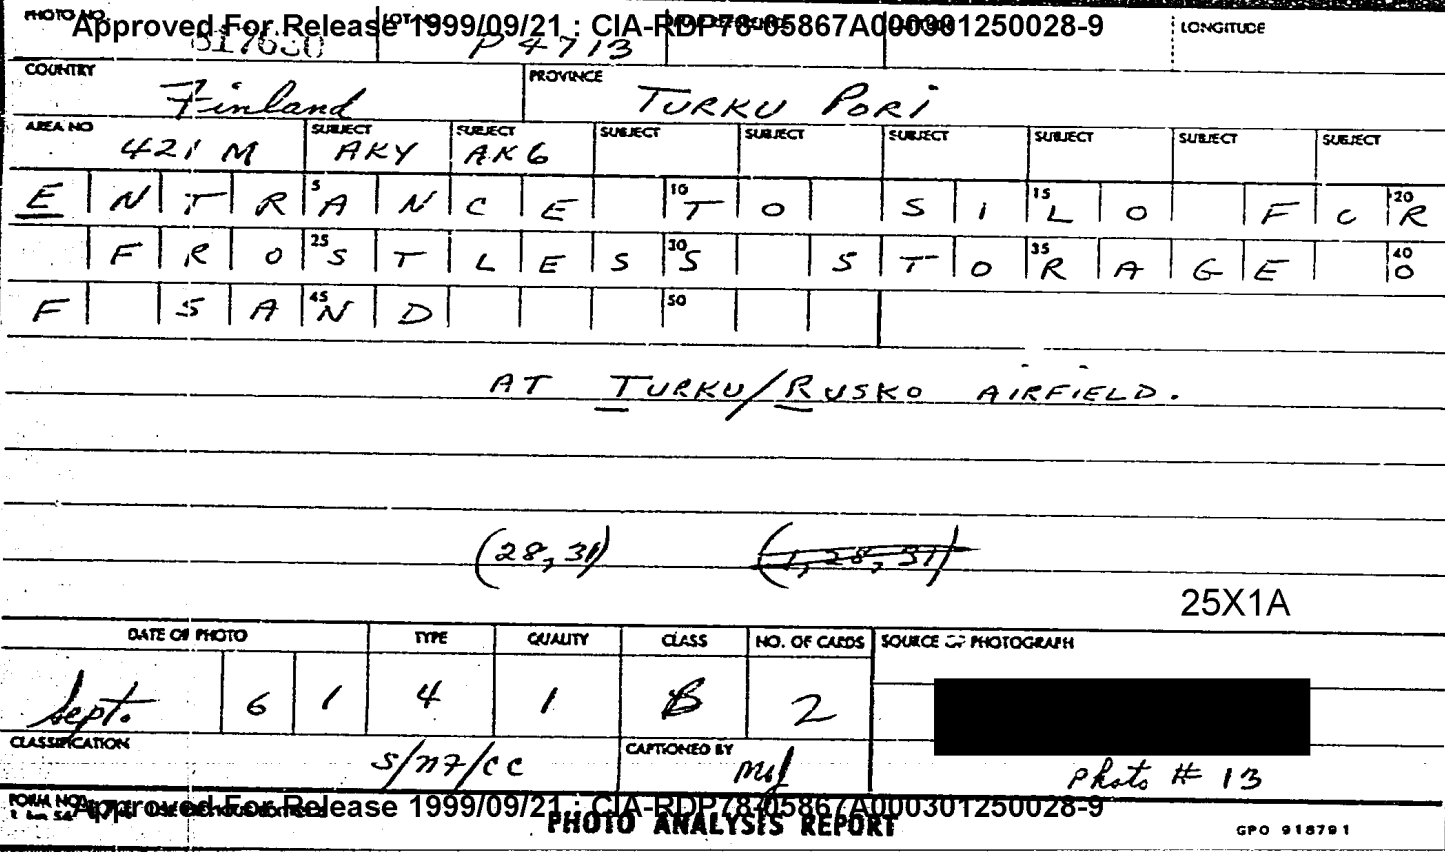 PHOTO NO. LOT NO. LONGITUDE
Approved For Release 1999/09/21 : CIA-RDP78-05867A000301250028-9
P4713
COUNTRY PROVINCE
Finland TURKU PORI
AREA NO SUBJECT SUBJECT SUBJECT SUBJECT SUBJECT SUBJECT SUBJECT SUBJECT
421 M AKY AK6
5 10 15 20
ENTRANCE TO SILO FCR
25 30 35 40
FROSTLESS STORAGE O
45 50
F SAND
AT TURKU/RUSKO AIRFIELD.
(28, 31) (1, 28, 31)
25X1A
DATE OF PHOTO TYPE QUALITY CLASS NO. OF CARDS SOURCE OF PHOTOGRAPH
Sept. 6 1 4 1 B 2
CLASSIFICATION CAPTIONED BY
S/NF/CC Photo # 13
FORM NO.
Approved For Release 1999/09/21 : CIA-RDP78-05867A000301250028-9
PHOTO ANALYSIS REPORT
GPO 918791